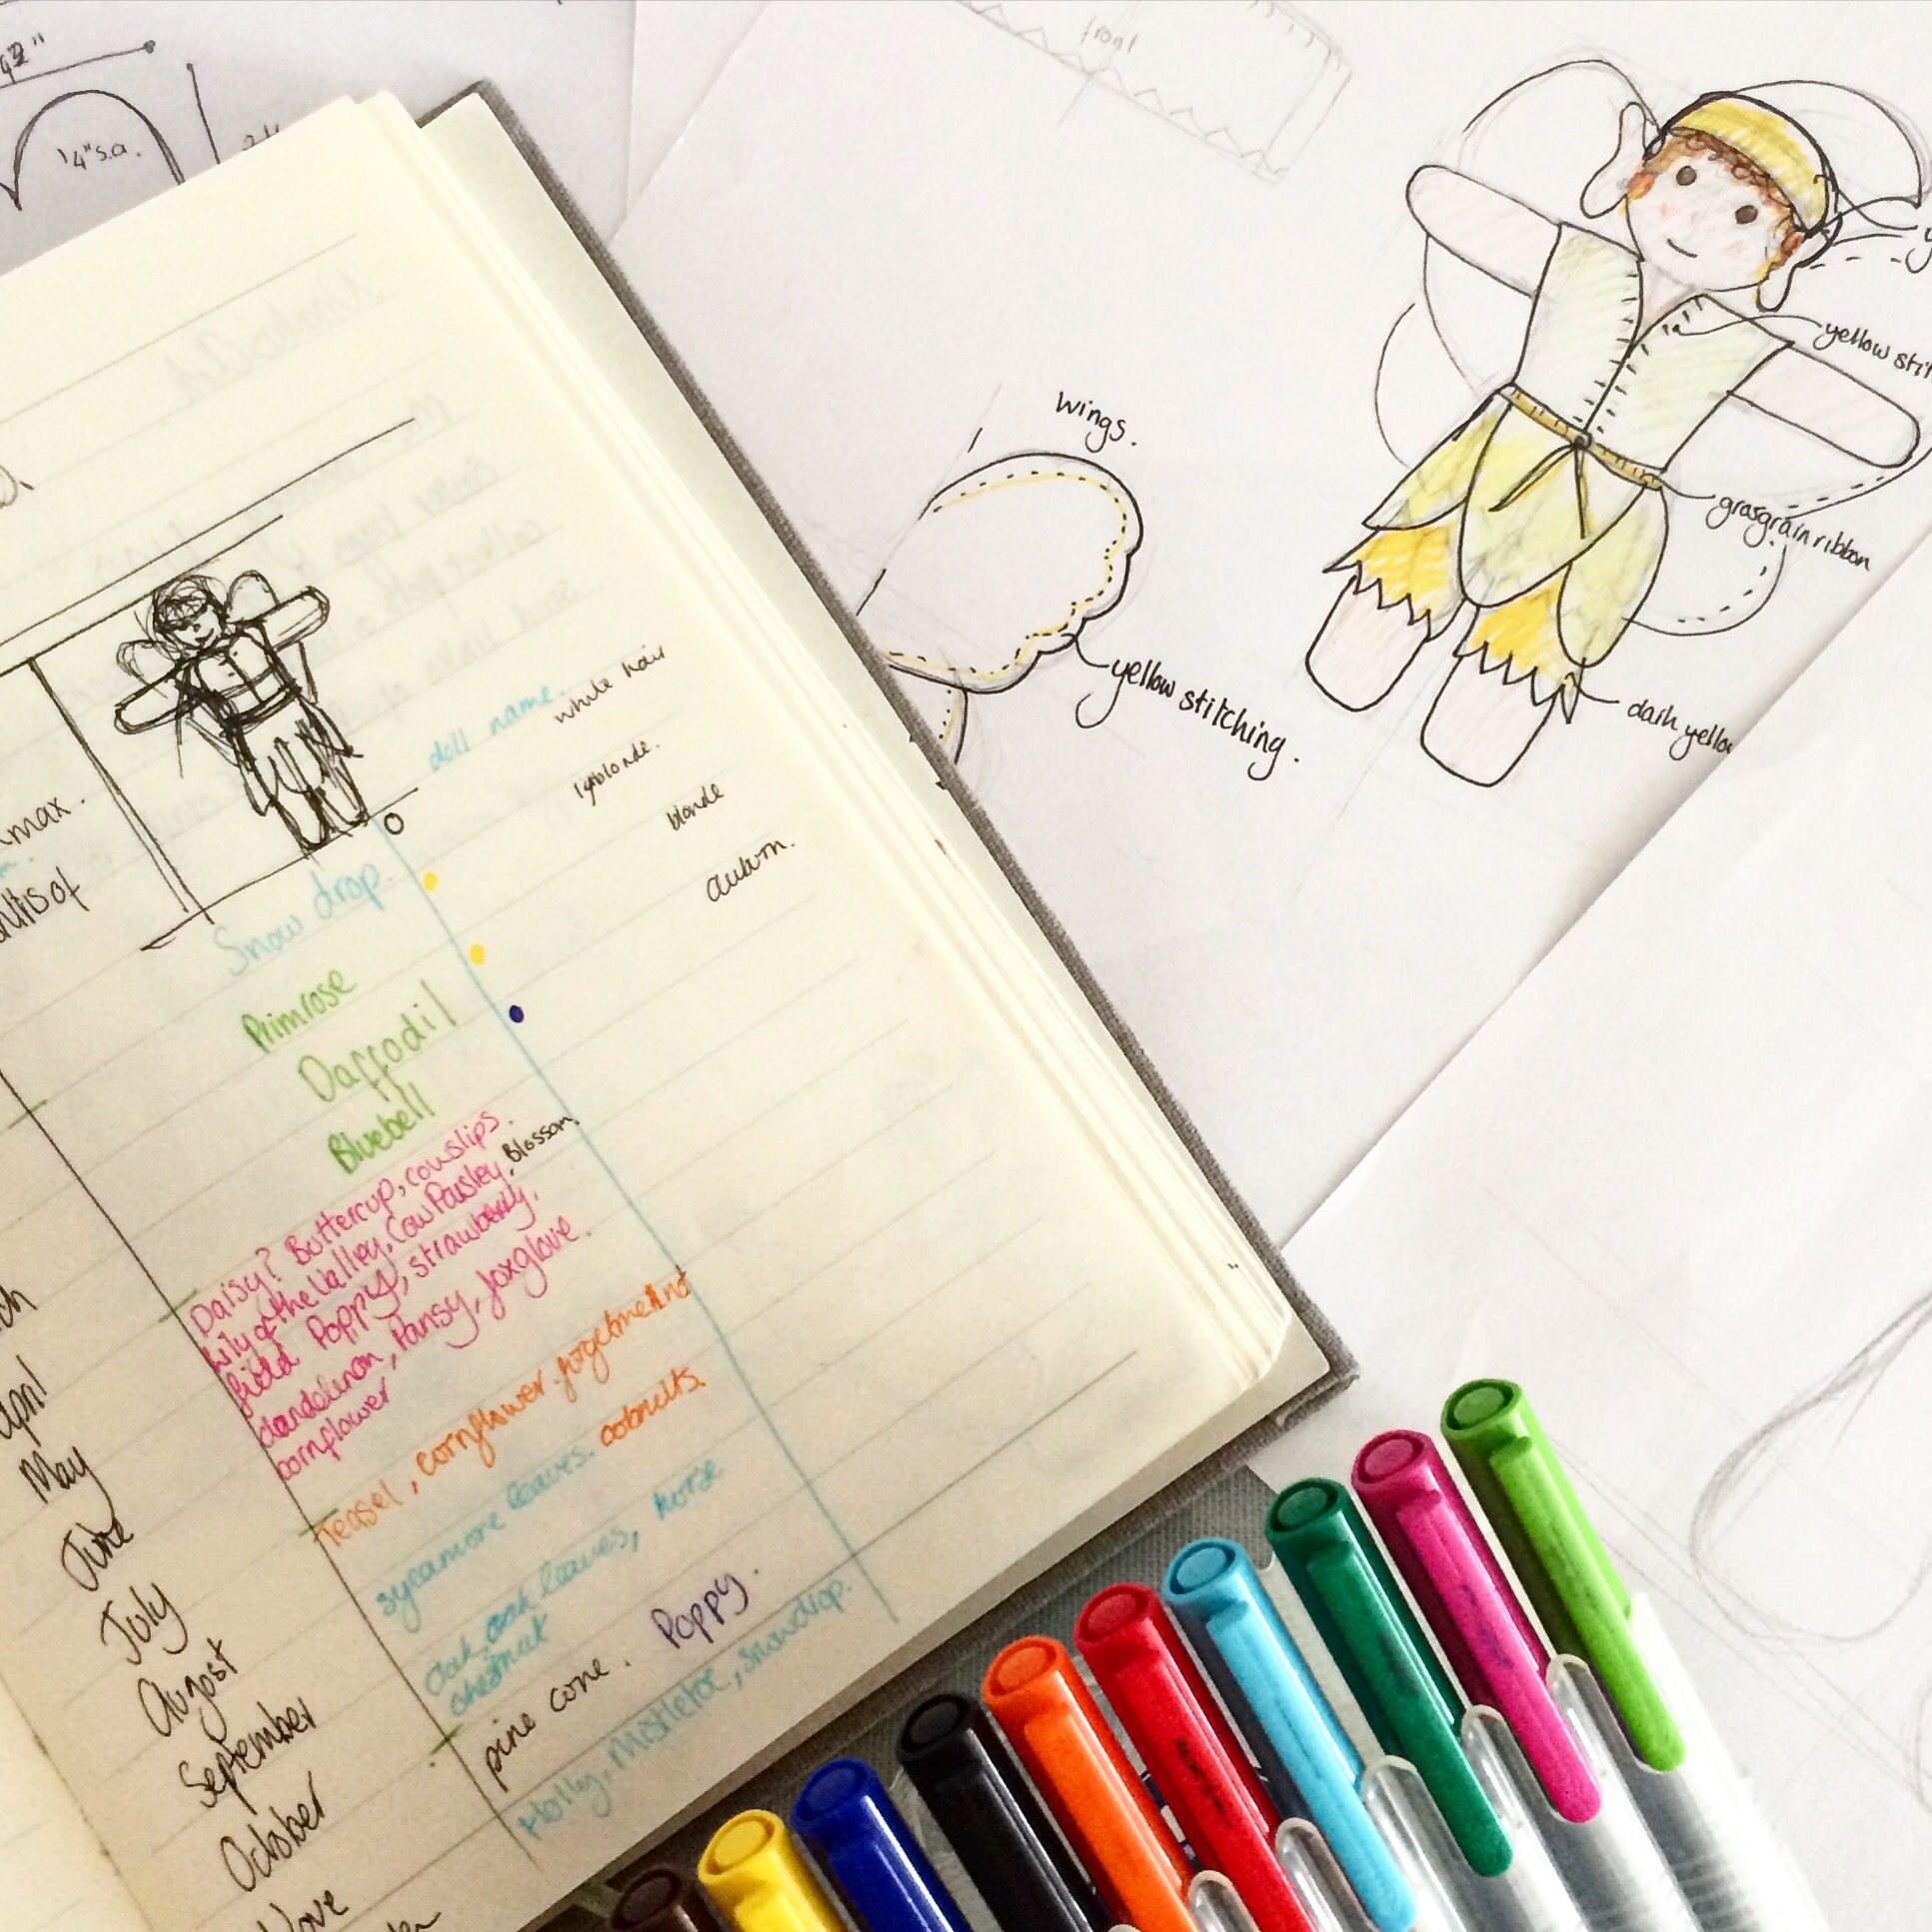 1/4" s.a.
front
wings.
yellow stitching.
yellow stit
grosgrain ribbon
dark yello
max.
doll name.
white hair
blonde
auburn.
Snow drop.
Primrose
Daffodil
Bluebell
Daisy? Buttercup, cowslips.
Lily of the Valley, Cow Parsley, Blossom,
field Poppy, strawberry,
dandelinon, Pansy, foxglove.
cornflower
Teasel, cornflower. forgetmeno
sycamore leaves. cobnuts.
Oak, oak leaves, horse
chestnut
pine cone. Poppy.
Holley, Mistletoe, snowdrop.
April
May
June
July
August
September
October
Nove